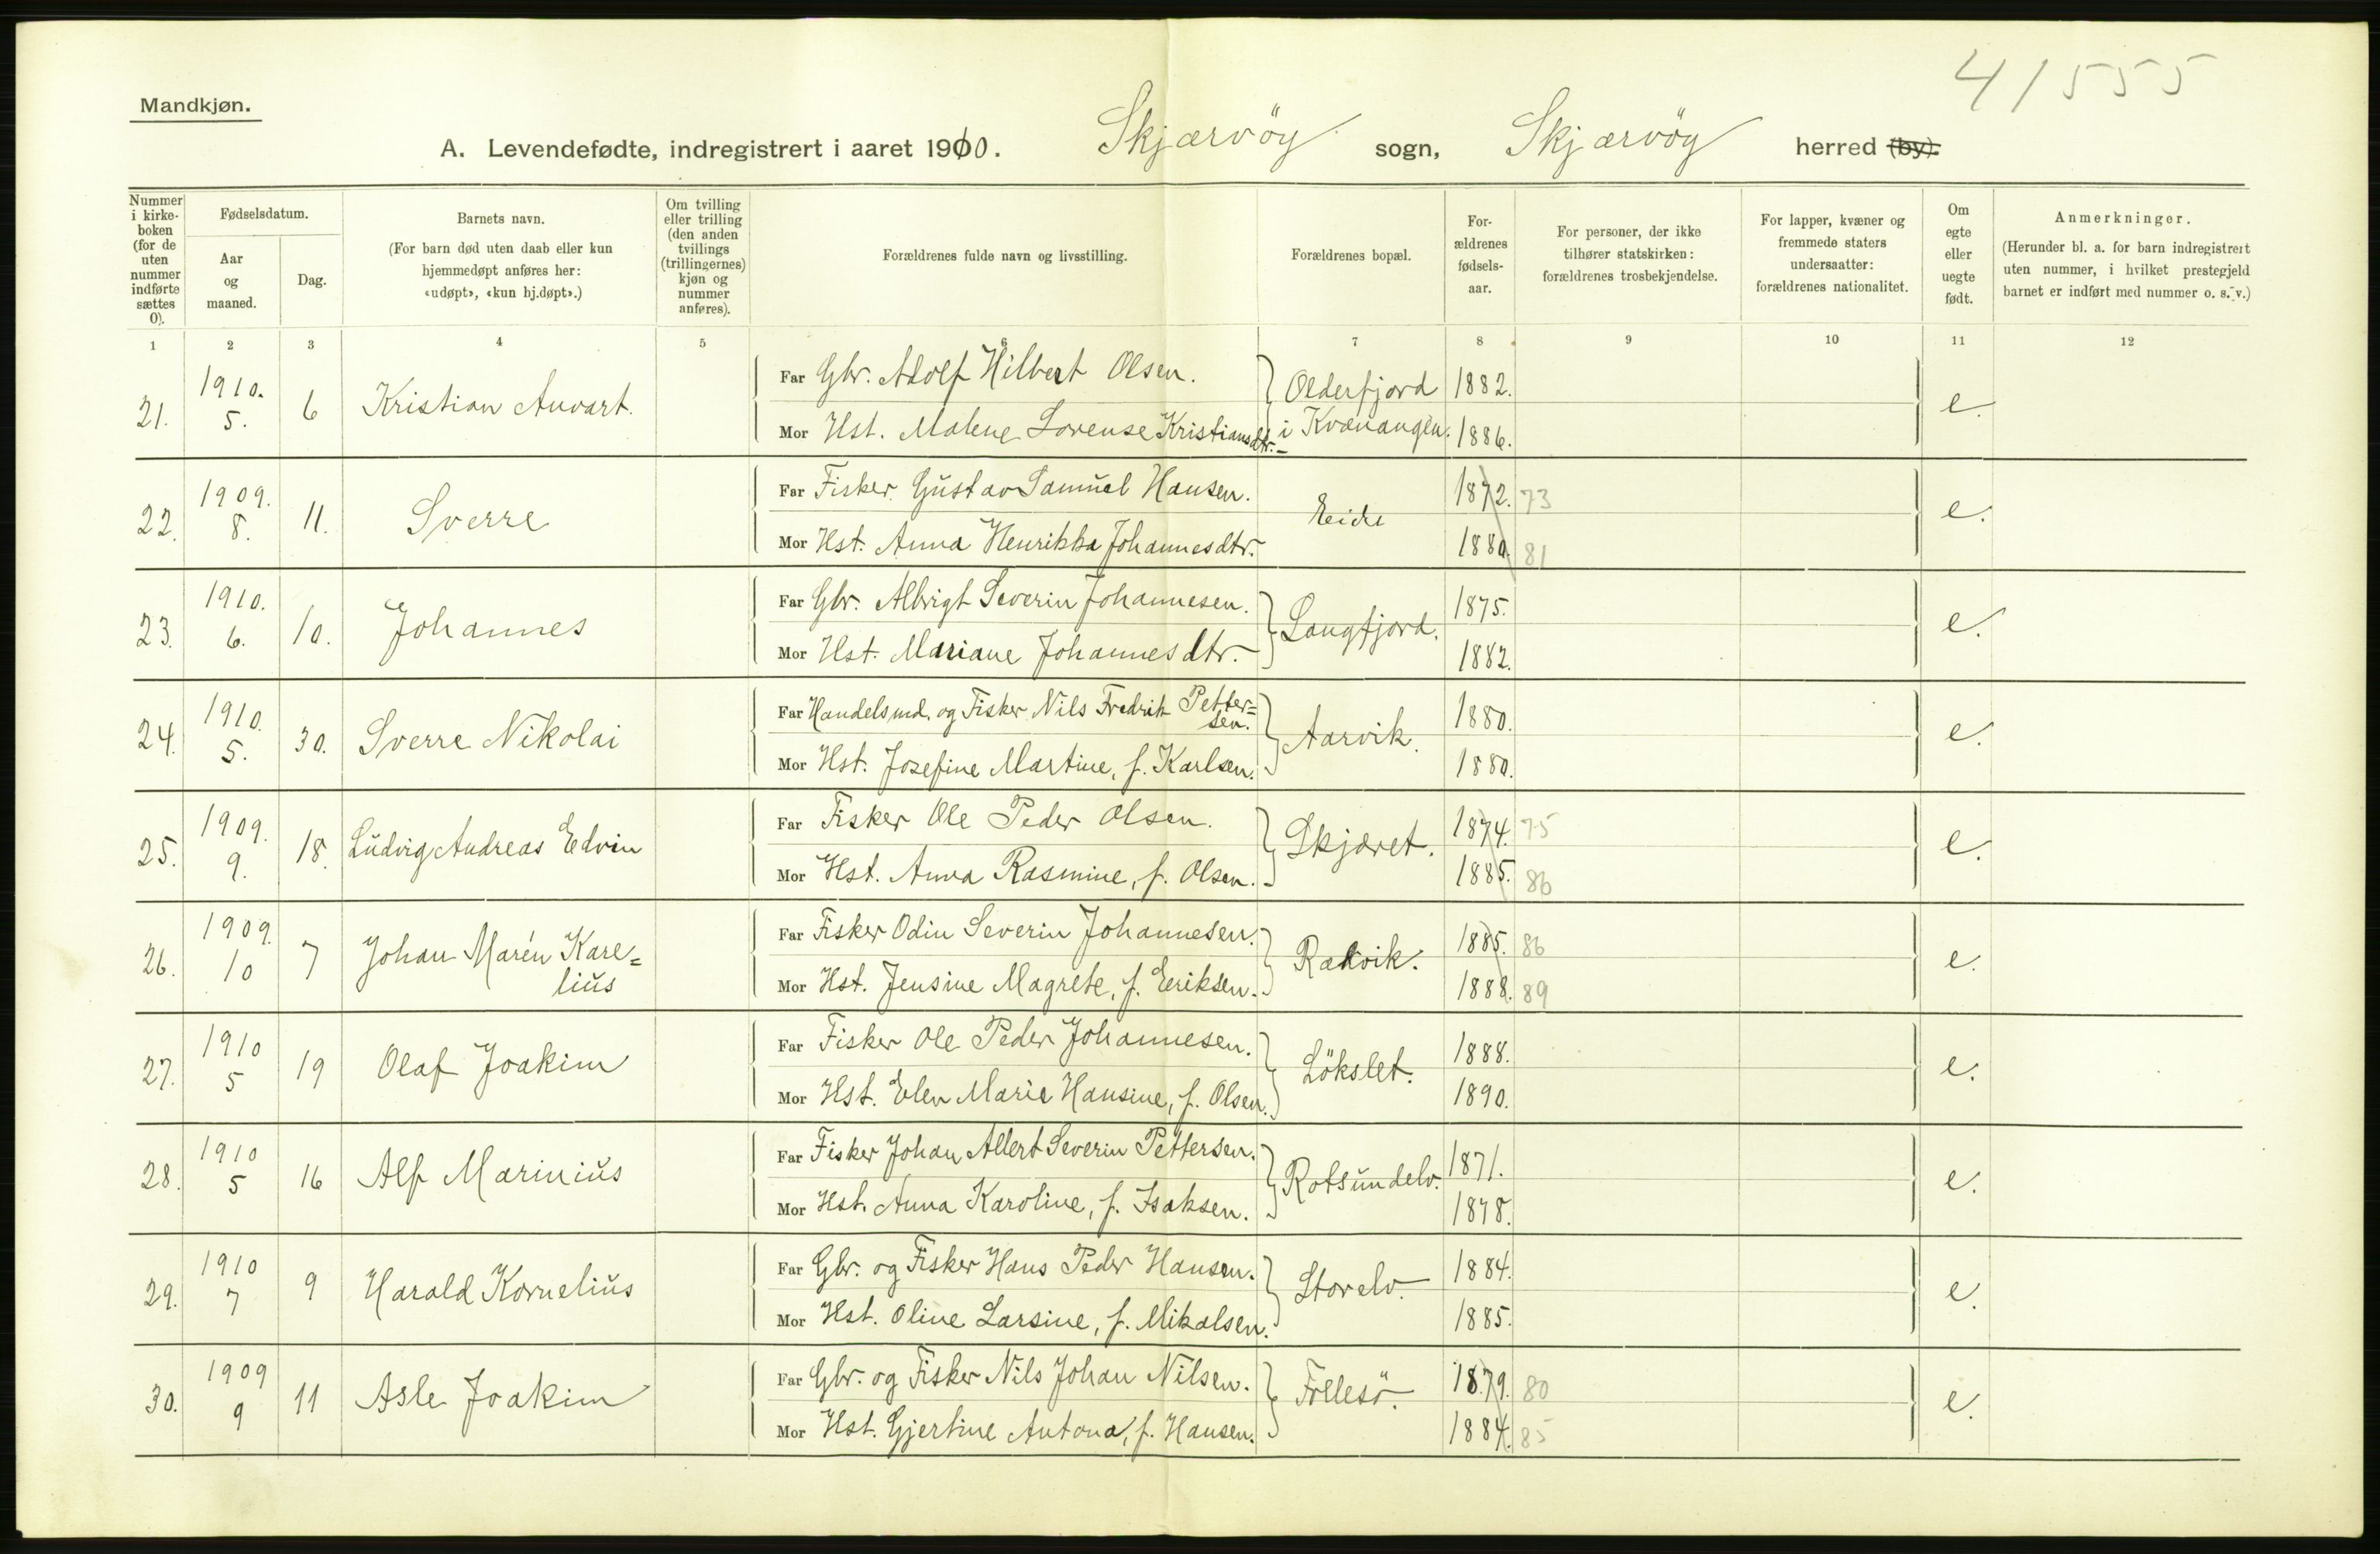 41555
Mandkjøn.
A. Levendefødte, indregistrert i aaret 1910. Skjærvöy sogn, Skjærvöy herred (by).
Nummer i kirke-boken (for de uten nummer indførte sættes 0).
Fødselsdatum.
Aar og maaned.
Dag.
Barnets navn.
(For barn død uten daab eller kun hjemmedøpt anføres her: «udøpt», «kun hj.døpt».)
Om tvilling eller trilling (den anden tvillings (trillingernes) kjøn og nummer anføres).
Forældrenes fulde navn og livsstilling.
Forældrenes bopæl.
For-ældrenes fødsels-aar.
For personer, der ikke tilhører statskirken: forældrenes trosbekjendelse.
For lapper, kvæner og fremmede staters undersaatter: forældrenes nationalitet.
Om egte eller uegte født.
Anmerkninger.
(Herunder bl. a. for barn indregistrert uten nummer, i hvilket prestegjeld barnet er indført med nummer o. s. v.)
1 2 3 4 5 6 7 8 9 10 11 12
21. 1910. 5. 6 Kristian Anvart. Far Gbr. Adolf Hilbert Olsen. Olderfjord 1882. e.
Mor Hst. Malene Lorense Kristiansdtr. i Kvænangen. 1886.
22. 1909. 8. 11. Sverre Far Fisker Gustav Samuel Hansen. Eide 1872. 73 e.
Mor Hst. Anna Henrikka Johannesdtr. 1880. 81
23. 1910. 6. 10. Johannes Far Gbr. Albrigt Severin Johannesen. Langfjord. 1875. e.
Mor Hst. Mariane Johannesdtr. 1882.
24. 1910. 5. 30. Sverre Nikolai Far Handelsmd. og Fisker Nils Fredrik Petter=sen. Aarvik. 1880. e.
Mor Hst. Josefine Martine, f. Karlsen. 1880.
25. 1909. 9. 18. Ludvig Andreas Edvin Far Fisker Ole Peder Olsen. Skjæret. 1874. 75 e.
Mor Hst. Anna Rasmine, f. Olsen. 1885. 86
26. 1909. 10 7 Johan Marén Kare=lius Far Fisker Odin Severin Johannesen. Rakvik. 1885. 86 e.
Mor Hst. Jensine Magrete, f. Eriksen. 1888. 89
27. 1910 5 19 Olaf Joakim Far Fisker Ole Peder Johannesen. Lökslet. 1888. e.
Mor Hst. Elen Marie Hansine, f. Olsen. 1890.
28. 1910 5 16 Alf Marinius Far Fisker Johan Albert Severin Pettersen. Rotsundelv. 1871. e.
Mor Hst. Anna Karoline, f. Isaksen. 1878.
29. 1910 7 9 Harald Kornelius Far Gbr. og Fisker Hans Peder Hansen. Storelv. 1884. e.
Mor Hst. Oline Larsine, f. Mikalsen. 1885.
30. 1909 9 11 Asle Joakim Far Gbr. og Fisker Nils Johan Nilsen. Follesö. 1879. 80 e.
Mor Hst. Gjertine Antona, f. Hansen. 1884. 85